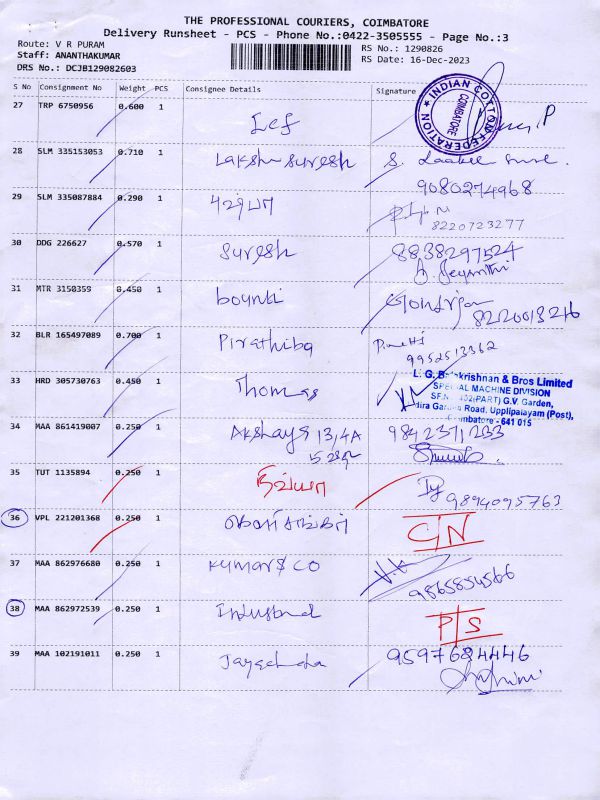 THE PROFESSIONAL COURIERS, COIMBATORE
Delivery Runsheet - PCS - Phone No.:0422-3505555 - Page No.:3
Route: V R PURAM
RS No.: 1290826
Staff: ANANTHAKUMAR
RS Date: 16-Dec-2023
DRS No.: DCJB129082603
S No Consignment No Weight PCS Consignee Details Signature
INDIAN COTTON FEDERATION COIMBATORE
27 TRP 6750956 0.600 1
28 SLM 335153053 0.710 1 Lakshu Suresh
9080274968
29 SLM 335087884 0.290 1
8220723277
30 DDG 226627 0.570 1 Suresh 8838297524
31 MTR 3150359 0.450 1
8220013216
32 BLR 165497089 0.700 1 Pirathiba
9952513362
33 HRD 305730763 0.450 1 Thomas
L. G. Balakrishnan & Bros Limited
SPECIAL MACHINE DIVISION
(PART) G.V. Garden,
Road, Upplipalayam (Post),
Coimbatore - 641 015
34 MAA 861419007 0.250 1 Akshaya 13,4A 9842371233
35 TUT 1135894 0.250 1
9894095763
36 VPL 221201368 0.250 1 C/N
37 MAA 862976680 0.250 1 Kumar & CO V.K
9865854566
38 MAA 862972539 0.250 1 Industrial P/S
39 MAA 102191011 0.250 1 9597684446